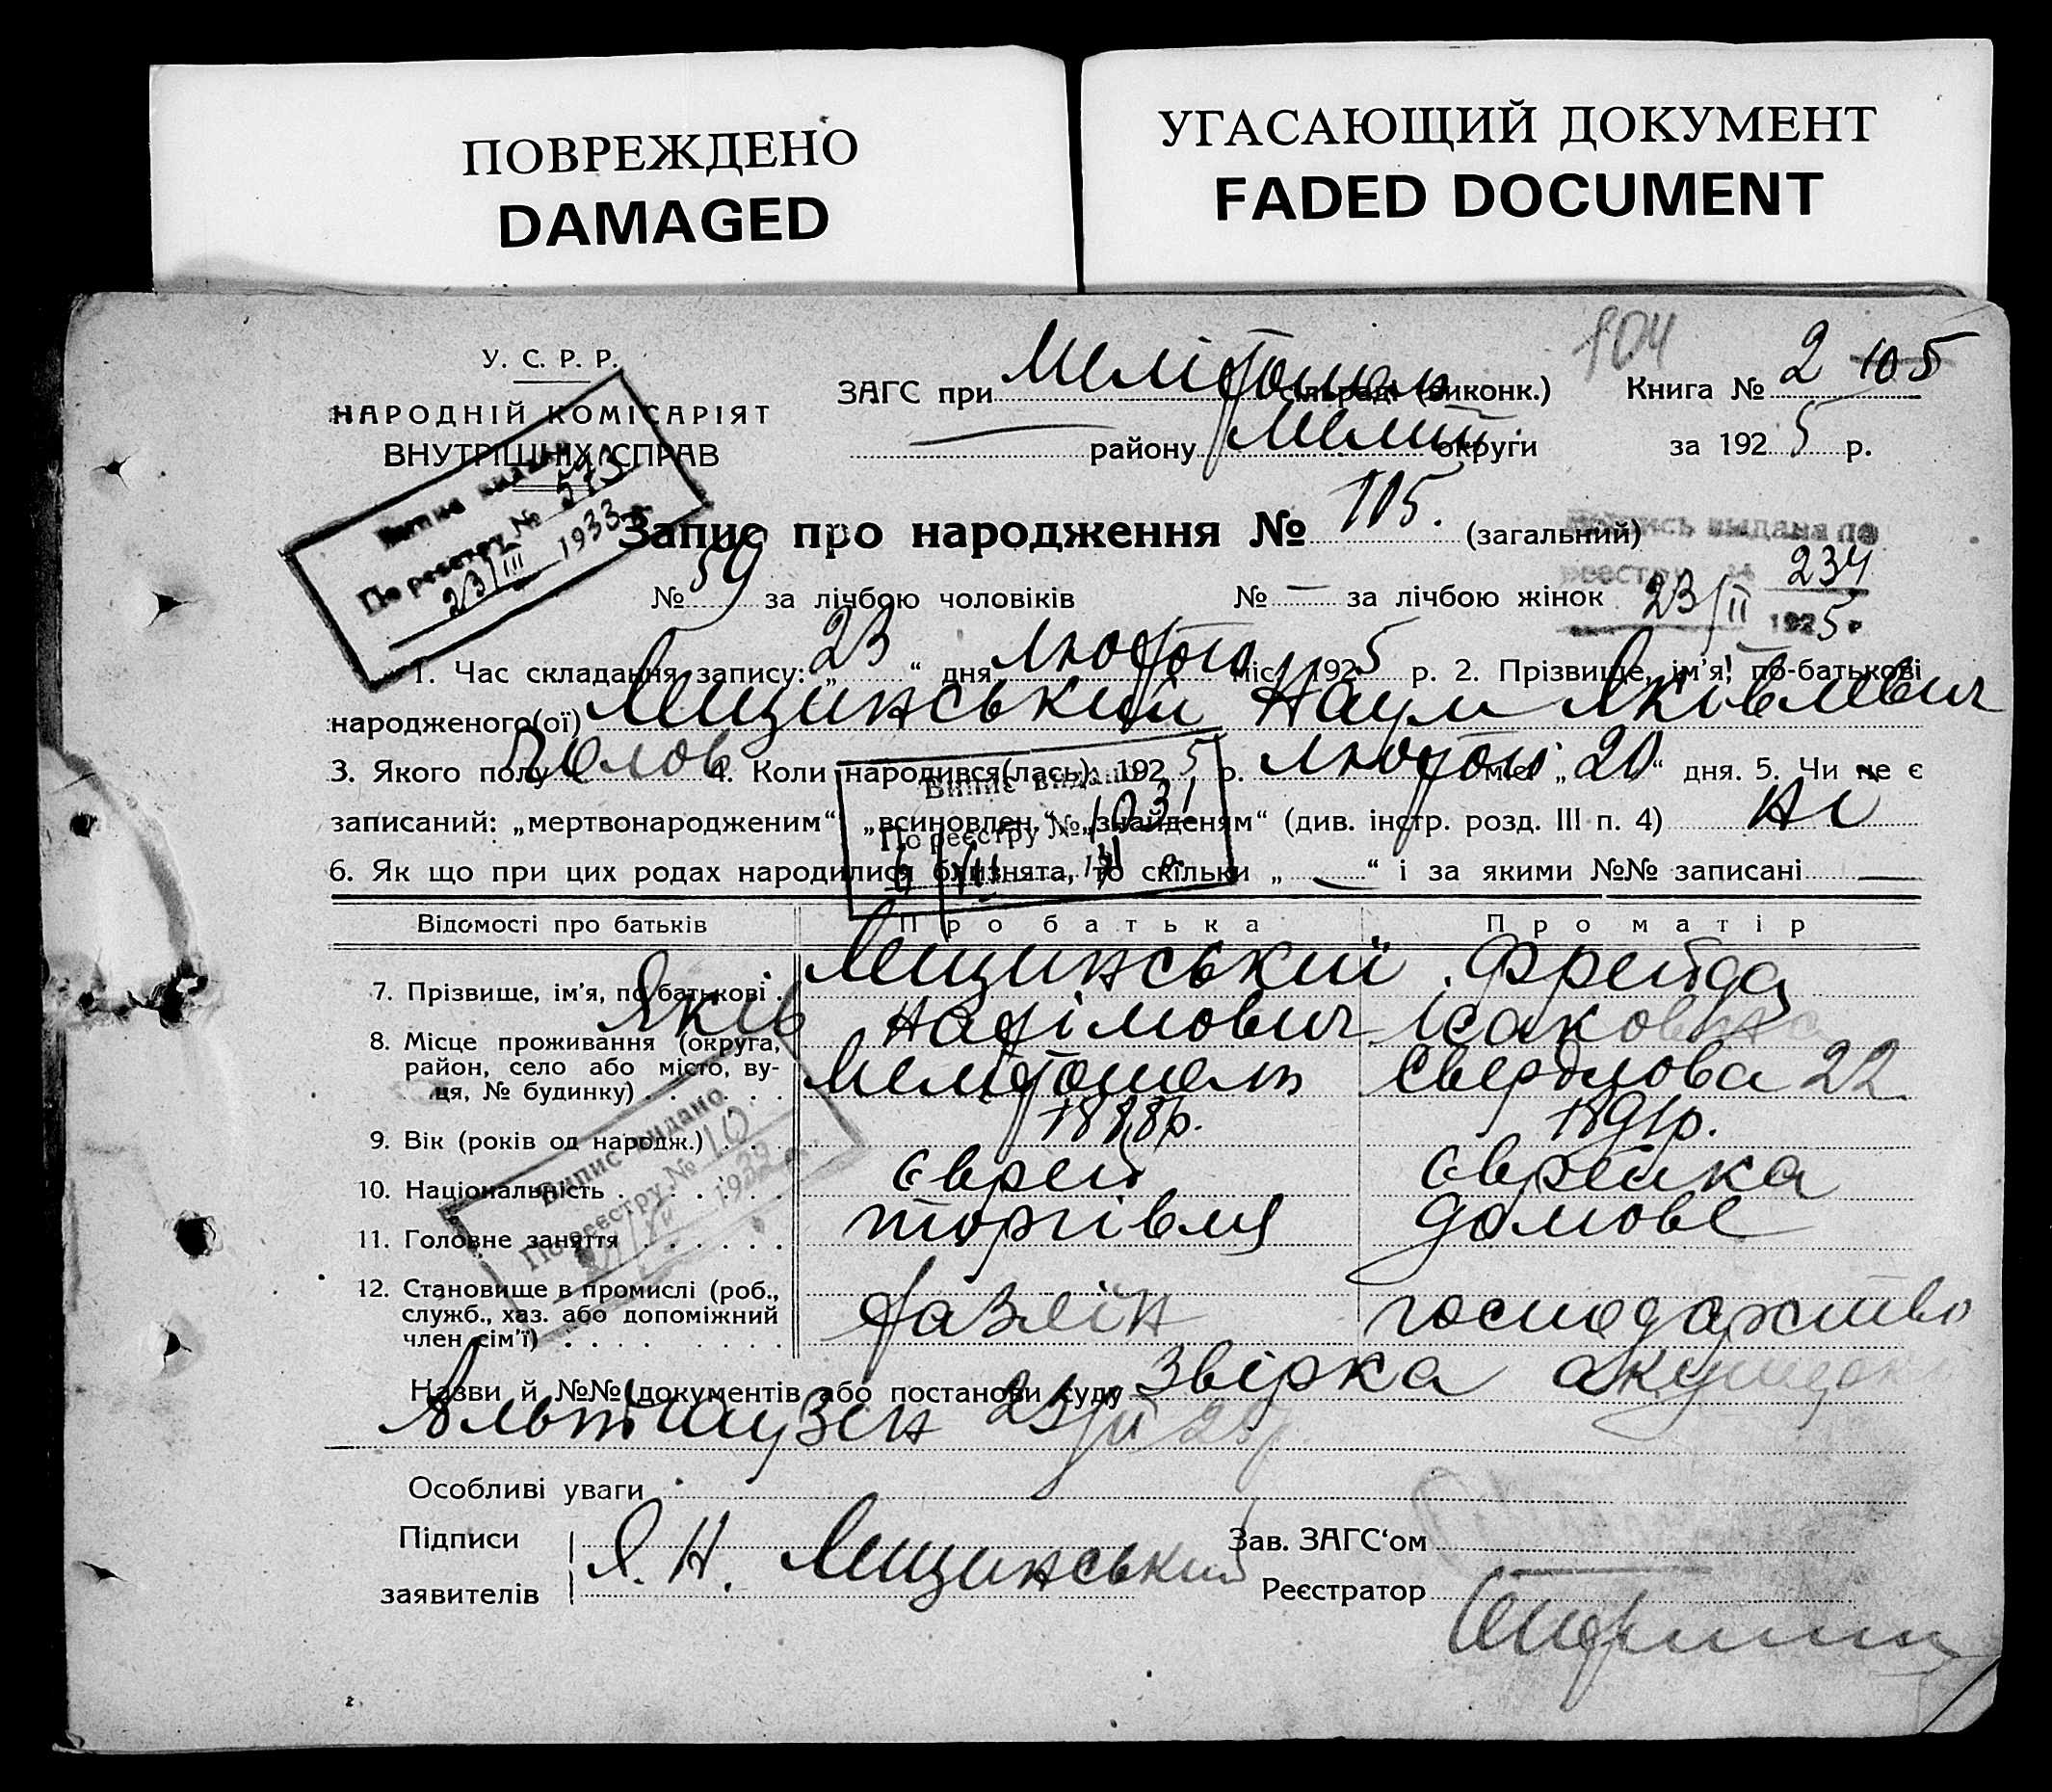 ПОВРЕЖДЕНО
DAMAGED
УГАСАЮЩИЙ ДОКУМЕНТ
FADED DOCUMENT
104
У. С. Р. Р.
НАРОДНІЙ КОМІСАРІЯТ
ВНУТРІШНІХ СПРАВ
ЗАГС при Мелітополь сільраді (виконк.) Книга № 2 105
району Меліт. округи за 1925 р.
Випис видано
По реєстру № 573
23/III 1933 р.
Запис про народження № 115. (загальний)
Выпись выдана по
реестру № 234
23/II 1925 г.
№ 59 за лічбою чоловіків № — за лічбою жінок
1. Час складання запису: „23“ дня лютого міс. 1925 р. 2. Прізвище, ім’я, по-батькові
народженого(ої) Лещинський Наум Яківлевич
3. Якого полу Чолов 4. Коли народився(лась): 1925 р. лютого міс. „20“ дня. 5. Чи не є
записаний: „мертвонародженим“ „всиновлен.“ „знайденям“ (див. інстр. розд. III п. 4) Ні
6. Як що при цих родах народилися близнята, то скільки „—“ і за якими №№ записані —
Випис видано
По реєстру № 1031
Відомості про батьків Про батька Про матір
7. Прізвище, ім’я, по батькові . Лещинський Фрейда
Яків Нафімович Ісаковна
8. Місце проживання (округа, район, село або місто, ву-ця, № будинку) . . . . Мелітополь Свердлова 22
9. Вік (років од народж.) . . . 1888р. 1891р.
10. Національність . . . . . . Єврей Єврейка
11. Головне заняття . . . . . . торгівля домове
12. Становище в промислі (роб., служб., хаз. або допоміжний член сім’ї) . . . . господарство
Випис видано
По реєстру № 110
1932 р.
Назви й №№ документів або постанови суду Звірка акушерки
Альтгаузен 23/II 25р.
Особливі уваги
Підписи заявителів Я. Н. Лещинський
Зав. ЗАГС‘ом
Реєстратор